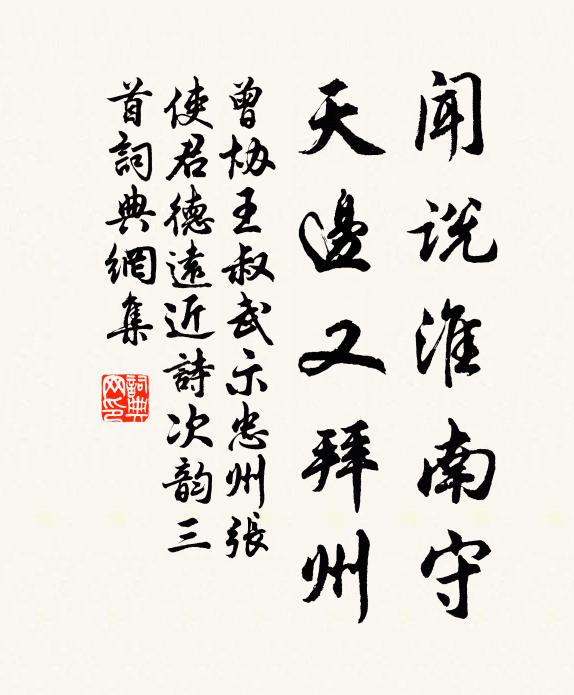 闻说淮南守
天邊又拜州
曾协王叔武示忠州張
使君德遠近詩次韵三
首詞典網集
詞典网印